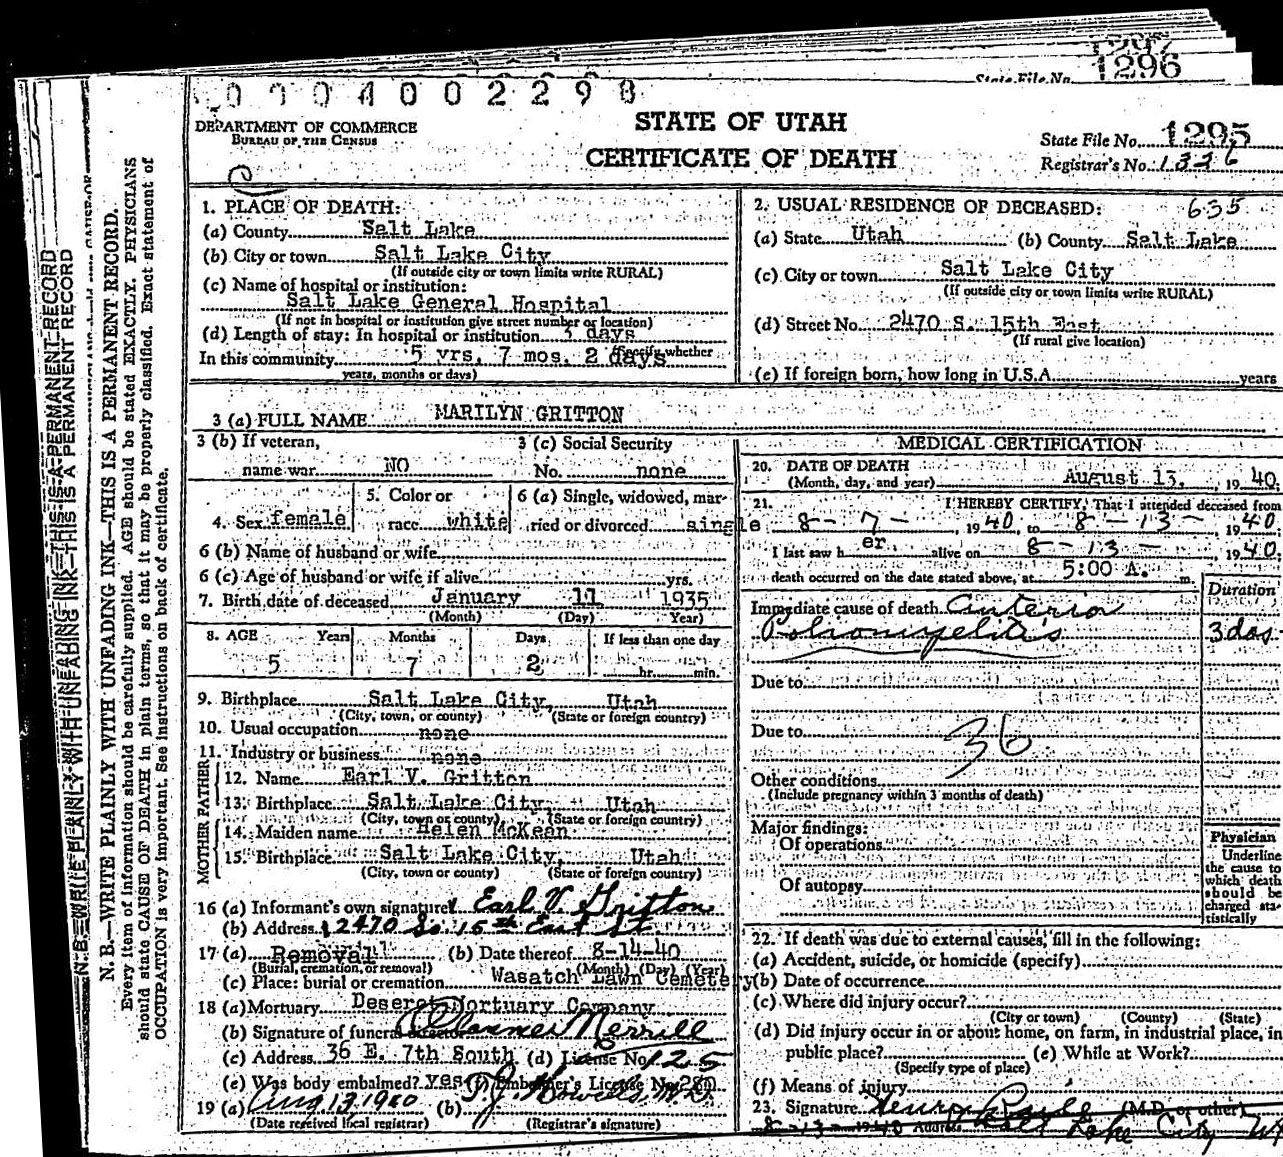 1297
1296
State File No.
0 0 0 4 0 0 2 2 9 8
DEPARTMENT OF COMMERCE
BUREAU OF THE CENSUS
STATE OF UTAH
CERTIFICATE OF DEATH
State File No. 1295
Registrar's No. 1336
1. PLACE OF DEATH:
(a) County Salt Lake
(b) City or town Salt Lake City
(If outside city or town limits write RURAL)
(c) Name of hospital or institution:
Salt Lake General Hospital
(If not in hospital or institution give street number or location)
(d) Length of stay: In hospital or institution days
(Specify whether
In this community 5 yrs. 7 mos. 2 days
years, months or days)
2. USUAL RESIDENCE OF DECEASED: 635
(a) State Utah (b) County Salt Lake
(c) City or town Salt Lake City
(If outside city or town limits write RURAL)
(d) Street No. 2470 S. 15th East
(If rural give location)
(e) If foreign born, how long in U.S.A. years
3 (a) FULL NAME MARILYN GRITTON
3 (b) If veteran,
name war NO
3 (c) Social Security
No. none
4. Sex female
5. Color or
race white
6 (a) Single, widowed, mar-
ried or divorced single
6 (b) Name of husband or wife
6 (c) Age of husband or wife if alive yrs.
7. Birth date of deceased January 11 1935
(Month) (Day) Year)
8. AGE Years Months Days If less than one day
5 7 2 hr. min.
9. Birthplace Salt Lake City, Utah
(City, town, or county) (State or foreign country)
10. Usual occupation none
11. Industry or business none
FATHER
12. Name Earl V. Gritton
13. Birthplace Salt Lake City, Utah
(City, town or county) (State or foreign country)
MOTHER
14. Maiden name Helen McKean
15. Birthplace Salt Lake City, Utah
(City, town or county) (State or foreign country)
16 (a) Informant's own signature Earl V. Gritton
(b) Address 2470 So. 15th East St
17 (a) Removal (b) Date thereof 8-14-40
(Burial, cremation, or removal) (Month) (Day) (Year)
(c) Place: burial or cremation Wasatch Lawn Cemetery
18 (a) Mortuary Deseret Mortuary Company
(b) Signature of funeral director Merrill
(c) Address 36 E. 7th South (d) License No. 125
(e) Was body embalmed? yes (f) Embalmer's License No. 280
19 (a) Aug 13, 1940 (b) T. J. Howells M.D.
(Date received local registrar) (Registrar's signature)
MEDICAL CERTIFICATION
20. DATE OF DEATH
(Month, day, and year) August 13, 19 40
21. I HEREBY CERTIFY, That I attended deceased from
8-7- 19 40 to 8-13- 19 40
I last saw h er alive on 8-13- , 19 40.
death occurred on the date stated above, at 5:00 A. m.
Duration
Immediate cause of death Anterior
Poliomyelitis 3 das.
Due to
Due to 36
Other conditions
(Include pregnancy within 3 months of death)
Major findings:
Of operations
Of autopsy
Physician
Underline
the cause to
which death
should be
charged sta-
tistically
22. If death was due to external causes, fill in the following:
(a) Accident, suicide, or homicide (specify)
(b) Date of occurrence
(c) Where did injury occur?
(City or town) (County) (State)
(d) Did injury occur in or about home, on farm, in industrial place, in
public place? (e) While at Work?
(Specify type of place)
(f) Means of injury
23. Signature Henry (M.D. or other)
8-13-1940 Address Salt Lake City
N. B.—WRITE PLAINLY WITH UNFADING INK—THIS IS A PERMANENT RECORD
N. B.—WRITE PLAINLY WITH UNFADING INK—THIS IS A PERMANENT RECORD.
Every item of information should be carefully supplied. AGE should be stated EXACTLY. PHYSICIANS
should state CAUSE OF DEATH in plain terms, so that it may be properly classified. Exact statement of
OCCUPATION is very important. See instructions on back of certificate.